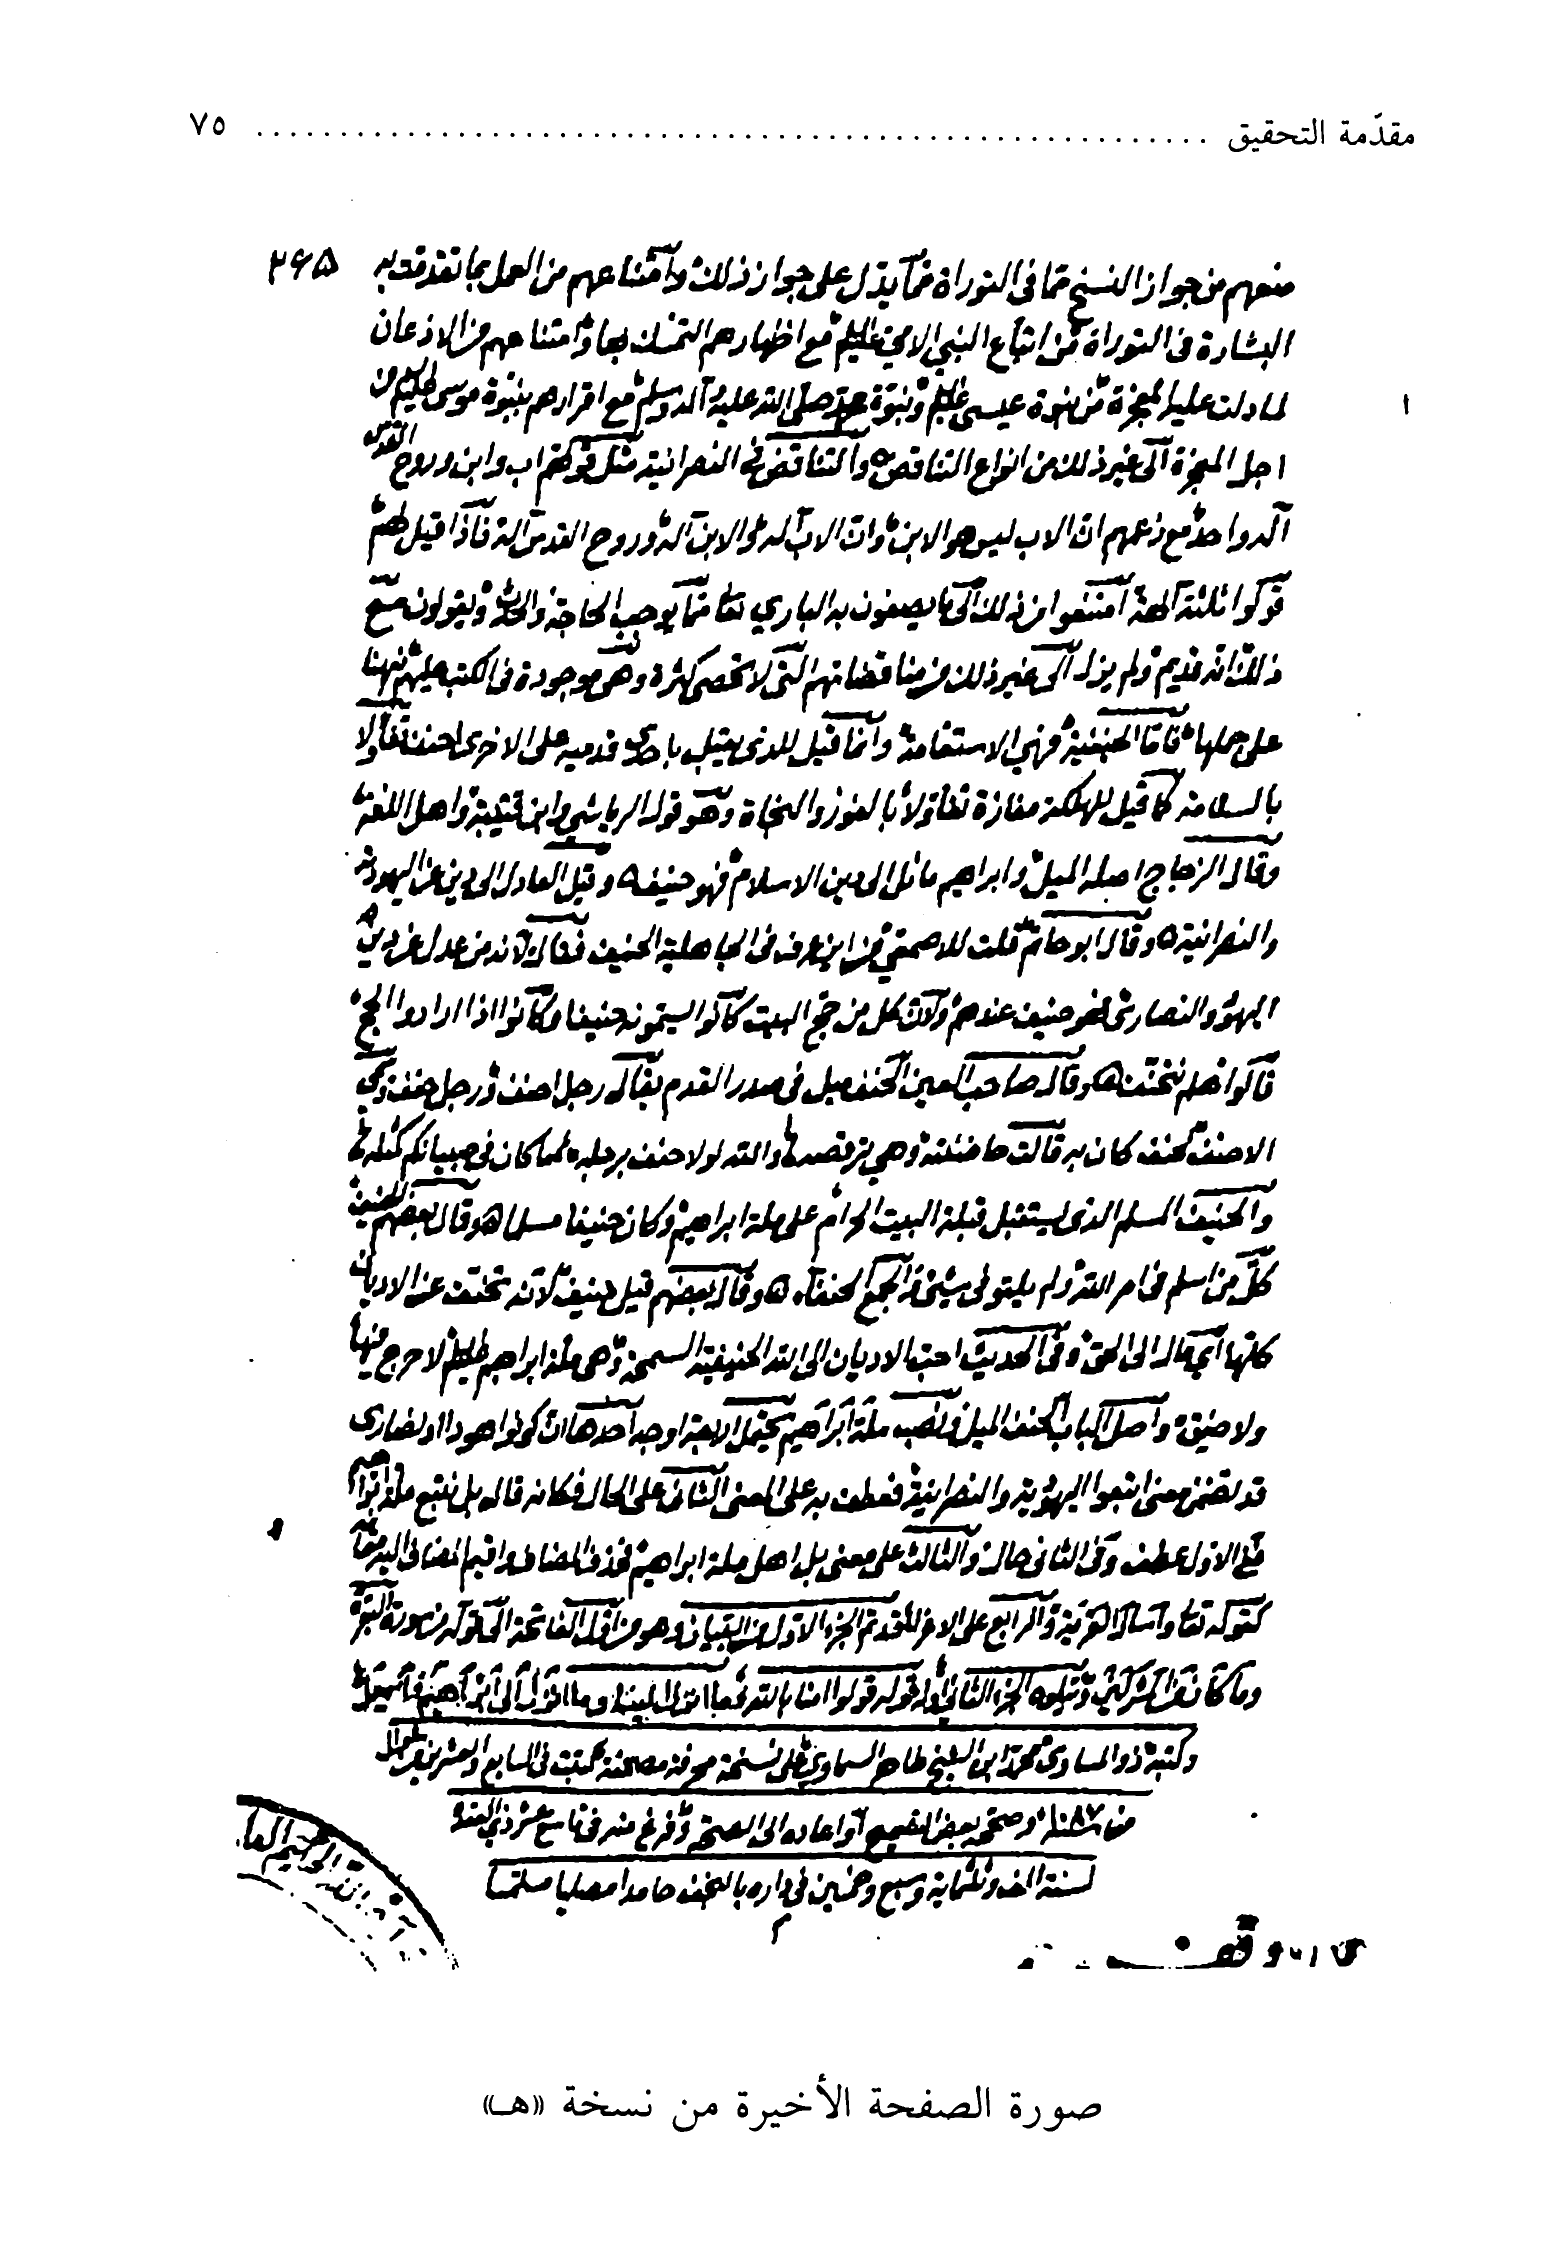 مقدّمة التحقيق ........................................................ ٧٥
٢٦٥
منعهم من جواز النسخ مما في التوراة مما يدل على جواز ذلك وامتناعهم من العمل بما تقدمت به
البشارة في التوراة من اتباع النبي الامي عليه السلام مع اظهارهم التمسك بها وامتناعهم من الاذعان
لما دلت عليه المعجزة من نبوة عيسى عليه السلام ونبوة محمد صلى الله عليه وآله وسلم مع اقرارهم بنبوة موسى عليه السلام من
اجل المعجزة الى غير ذلك من انواع التناقص ه والتناقض في النصرانية مثل قولهم اب وابن وروح القدس
آله واحد مع زعمهم ان الاب ليس هو الابن وان الاب آله والابن آله وروح القدس آله فاذا قيل لهم
قولوا ثلثة آلهة امتنعوا من ذلك الى ما يصفون به الباري تعا مما يوجب الحاجة والحدث ويقولون مع
ذلك انه قديم ولم يزل الى غير ذلك من مناقضاتهم التي لا تحصى كثرة وهي موجودة في الكتب عليهم نبهنا
على جملها فاما الحنيفية فهي الاستقامة وانما قيل للذي يقبل باحدى قدميه على الاخرى احنف تفألا
بالسلامة كما قيل للمهلكة مفازة تفأولا بالفوز والنجاة وهو قول الرياشي وابن قتيبة واهل اللغة
وقال الزجاج اصله الميل وابراهيم مائل الى دين الاسلام فهو حنيف ه وقيل العادل الى دين عن اليهودية
والنصرانية ه وقال ابو حاتم قلت للاصمعي من اين عرف في الجاهلية الحنيف فقال لانه من عدل عن دين
اليهود والنصارى فهو حنيف عندهم ولان كل من حج البيت كانوا يسمونه حنيفا وكانوا اذا ارادوا الحج
قالوا هلم نتحنف ه وقال صاحب العين الحنف ميل في صدر القدم يقال رجل احنف ورجل حنف وسمي
الاحنف لحنف كان به قالت حاضنته وهي ترقصه والله لولا حنف برجله ما كان في صبيانكم كمثله
والحنيف المسلم الذي يستقبل قبلة البيت الحرام على ملة ابراهيم وكان حنيفا مسلما ه وقال بعضهم الحنيف
كل من اسلم في امر الله ولم يلتو في شيء منه الجمع الحنفآء ه وقال بعضهم قيل حنيف لانه تحنف عن الاديان
كلها اي مال الى الحق وفي الحديث احب الاديان الى الله الحنيفية السمحة وهي ملة ابراهيم عليه السلام لا حرج فيها
ولا ضيق واصل الباب الحنف الميل ونصب ملة ابراهيم يحتمل اربعة اوجه احدها ان كونوا هودا او نصارى
قد تضمن معنى اتبعوا اليهودية والنصرانية فعطف به على المعنى الثاني على الحال فكانه قال بل نتبع ملة ابراهيم
فعلى الاول عطف وفي الثاني حال والثالث على معنى بل اهل ملة ابراهيم فحذف المضاف واقيم المضاف اليه مقامه
كقوله تعا واسال القرية والرابع على الاغراء قد تم الجزء الاول من التبيان وهو من اول الفاتحة الى قوله من سورة البقرة
وما كان من المشركين ويتلوه الجزء الثاني اوله قوله قولوا امنا بالله وما انزل الينا وما انزل الى ابراهيم واسمعيل
وكتبه ذو المساوي محمد ابن الشيخ طاهر السماوي على نسخة محرفة مصحفة كتبت في السابع والعشرين من شوال
من سنة ١٠٨٧ وصححه بعض التصحيح واعاده الى الصحة وفرغ منه في تاسع عشر ذي القعدة
لسنة الف وثلثماية وسبع وخمسين في داره بالنجف حامدا مصليا مسلما
صورة الصفحة الأخيرة من نسخة «هـ»